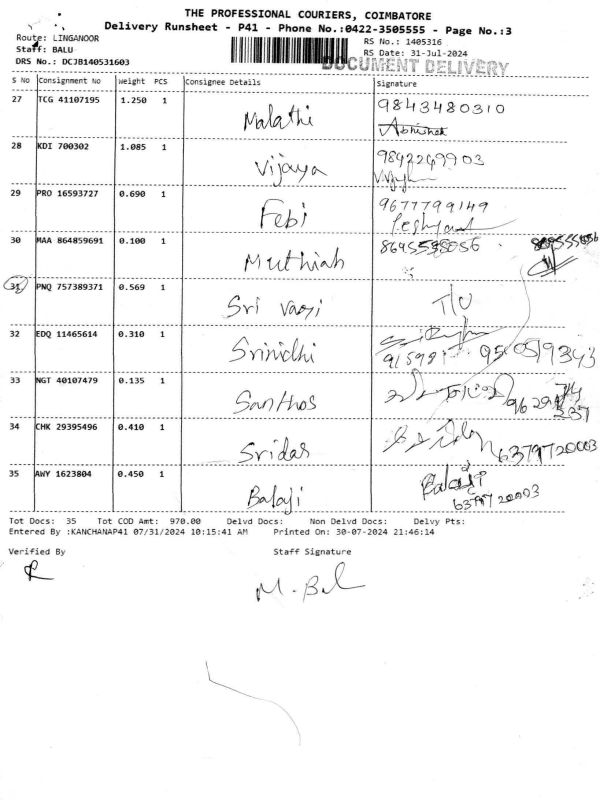 THE PROFESSIONAL COURIERS, COIMBATORE
Delivery Runsheet - P41 - Phone No.:0422-3505555 - Page No.:3
Route: LINGANOOR
RS No.: 1405316
Staff: BALU
RS Date: 31-Jul-2024
DRS No.: DCJB140531603
DOCUMENT DELIVERY
S No Consignment No Weight PCS Consignee Details Signature
27 TCG 41107195 1.250 1 Malathi 9843480310
Abhishek
28 KDI 700302 1.085 1 Vijaya 9842249903
29 PRO 16593727 0.690 1 Febi 9677799149
30 MAA 864859691 0.100 1 Muthiah
31 PNQ 757389371 0.569 1 Sri T/U
32 EDQ 11465614 0.310 1 Srinidhi
33 NGT 40107479 0.135 1 Santhos
34 CHK 29395496 0.410 1 Sridas 6379720003
35 AWY 1623804 0.450 1 Balaji Balaji
6379720003
Tot Docs: 35 Tot COD Amt: 970.00 Delvd Docs: Non Delvd Docs: Delvy Pts:
Entered By :KANCHANAP41 07/31/2024 10:15:41 AM Printed On: 30-07-2024 21:46:14
Verified By Staff Signature
M. Bal